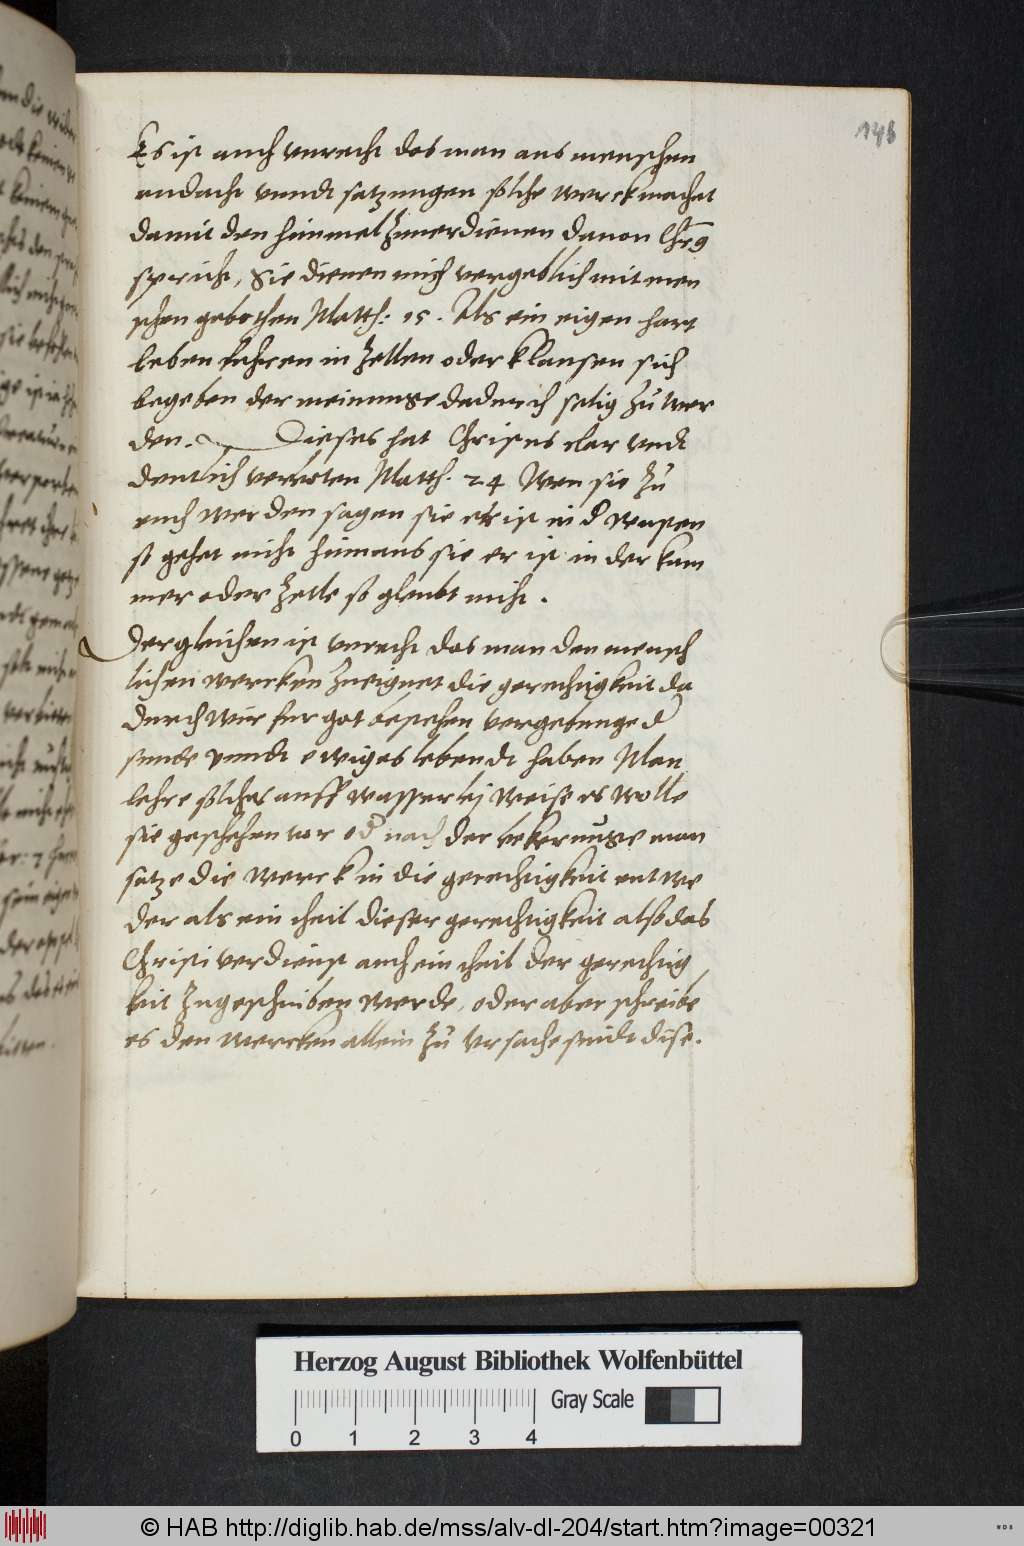 148
Es ist auch vnrecht das man aus menschen
andacht vnndt satzungen solche werck machet
damit den himmel zuuerdienen dauon Chrs
spricht, Sie dienen mich vergeblich mit men
schen gebothen Matth: 15. Als ein eigen hart
leben fuhren in Zellen oder Klausen sich
begeben der meinunge dadurch selig zu wer
den. Dieses hat Christus clar vndt
deutlich verboten Matth. 24 Wen sie zu
euch werden sagen sie er ist in d wusten
so gehet nicht hinnaus sie er ist in der kam
mer oder Zelle so gleubt nicht.
Dergleichen ist vnrecht das man den mensch
lichen wercken zueignet die gerechtigkeit da
durch wir fur got bestehen vergebunge d
sunde vnndt ewiges lebendt haben Man
lehre solches auff wasserlej weise es wolle
sie geschehen vor od nach der bekerunge man
setze die werck in die gerechtigkeit entwe
der als ein theil dieser gerechtigkeit also das
Christi verdienst auch ein theil der gerechtig
keit zugeschriben werde, oder aber schreibe
es den wercken allein zu vrsache seindt dise.
Herzog August Bibliothek Wolfenbüttel
Gray Scale
0 1 2 3 4
© HAB http://diglib.hab.de/mss/alv-dl-204/start.htm?image=00321